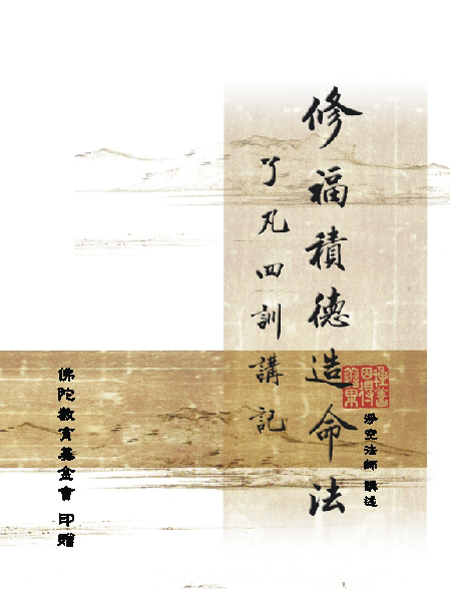 修福積德造命法
了凡四訓講記
淨空法師 講述
佛陀教育基金會 印贈